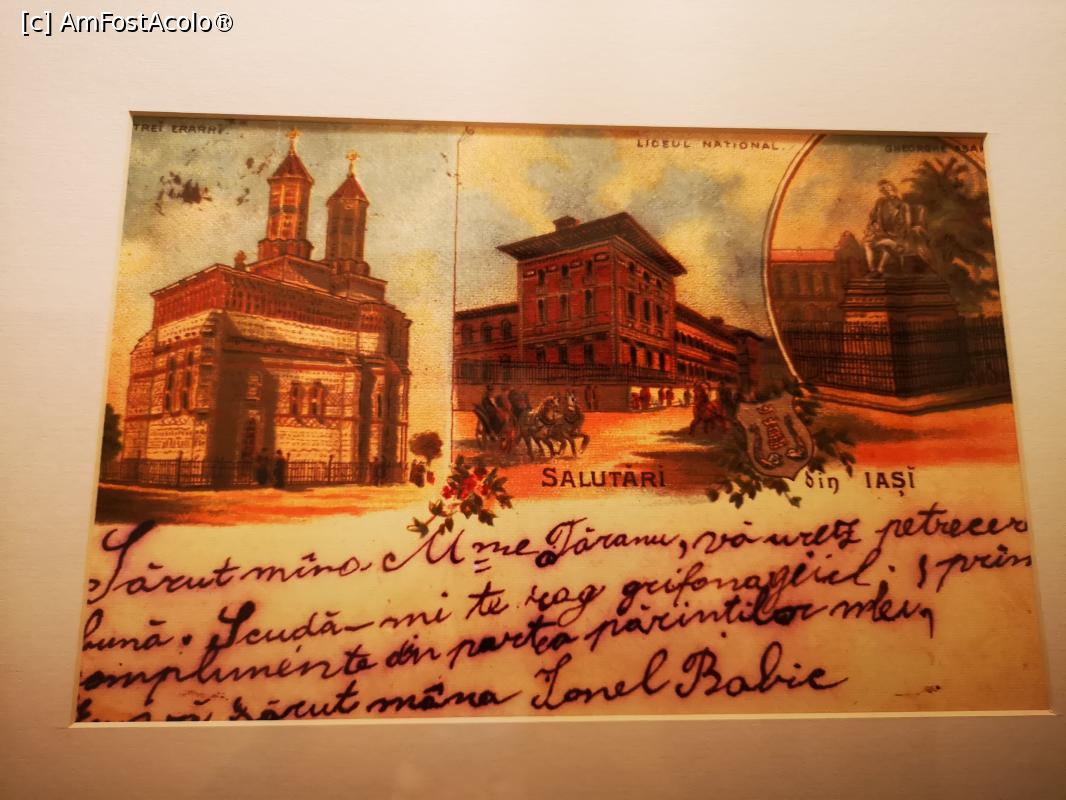 [c] AmFostAcolo®
TREI ERARHI.
LICEUL NATIONAL.
GHEORGHE ASA
SALUTĂRI din IAȘI
Sărut mîna Mme Țăranu, vă urez petrecer
bună. Scudă-mi te rog grifonagiul; și prim
omplimente din partea părintilor mei,
vă sărut mâna Ionel Babic